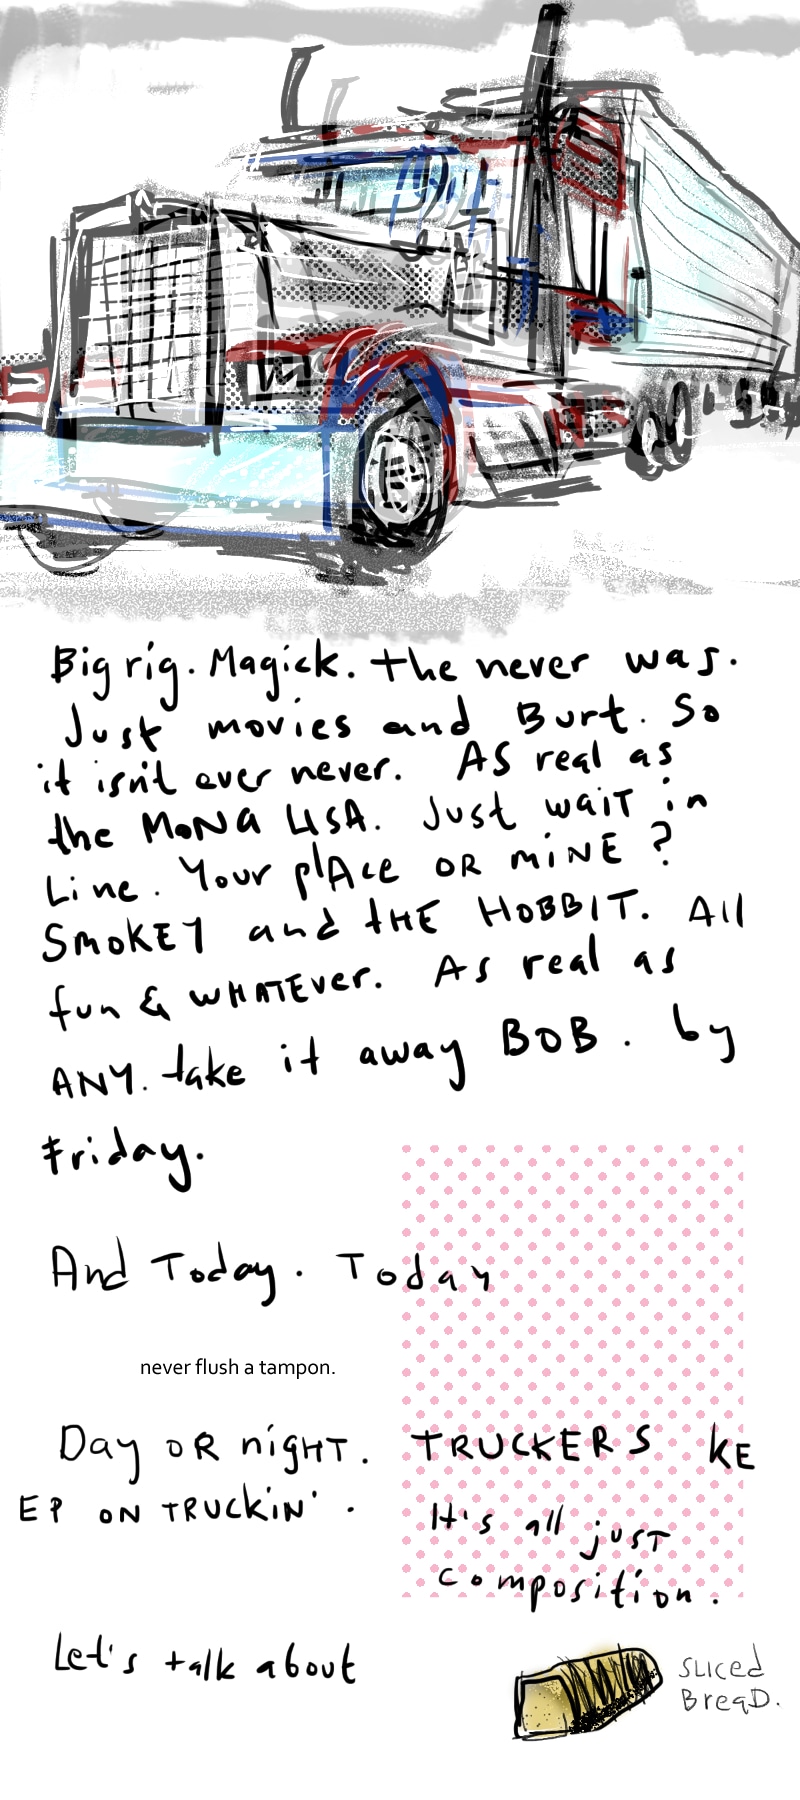 Big rig. Magick. the never was.
Just movies and Burt. So
it isn't ever never. AS real as
the MoNa LISA. Just waiT in
Line. Your plAce OR miNE ?
SMOKEY and tHE HOBBIT. All
fun & WHATEver. As real as
ANY. take it away BOB. by
Friday.
And Today. Today
never flush a tampon.
Day OR nigHT. TRUCKERS KE
EP ON TRUCKiN'.
It's all jusT
composition.
Let's talk about
SLiced
BreaD.